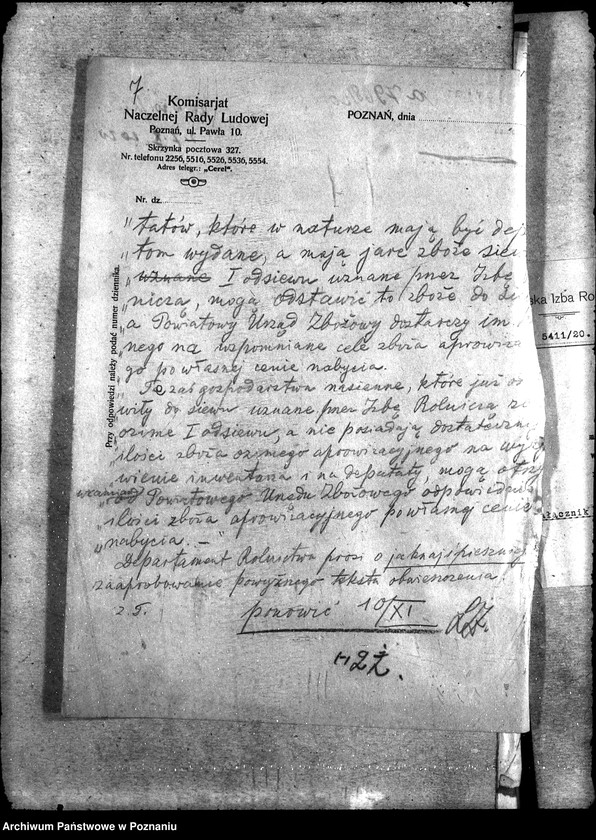 7
Komisarjat
Naczelnej Rady Ludowej
Poznań, ul. Pawła 10.
Skrzynka pocztowa 327.
Nr. telefonu 2256, 5516, 5526, 5536, 5554.
Adres telegr.: „Cerel".
POZNAŃ, dnia
Nr. dz.
Przy odpowiedzi należy podać numer dziennika.
„tatów, które w naturze mają być
tom wydane, a mają jare zboże
uznane I odsiewu uznane przez Izbę
niczą, mogą odstawić to zboże do
a Powiatowy Urząd Zbożowy dostarczy im
nego na wspomniane cele zboża
go po własnej cenie nabycia.
Te zaś gospodarstwa nasienne, które już
wiły do siewu uznane przez Izbę Rolniczą
ozime I odsiewu, a nie posiadają
ilości zboża ozimego aprowizacyjnego na
wienie inwentarza i na deputaty, mogą
od Powiatowego Urzędu Zbożowego
ilości zboża aprowizacyjnego po własnej cenie
nabycia. –"
Departament Rolnictwa prosi o jaknajśpieszniejsze
zaaprobowanie powyższego tekstu obwieszczenia.
z T.
ponowić 10/XI
ska Izba Ro
5411/20.
łącznik
Archiwum Państwowe w Poznaniu